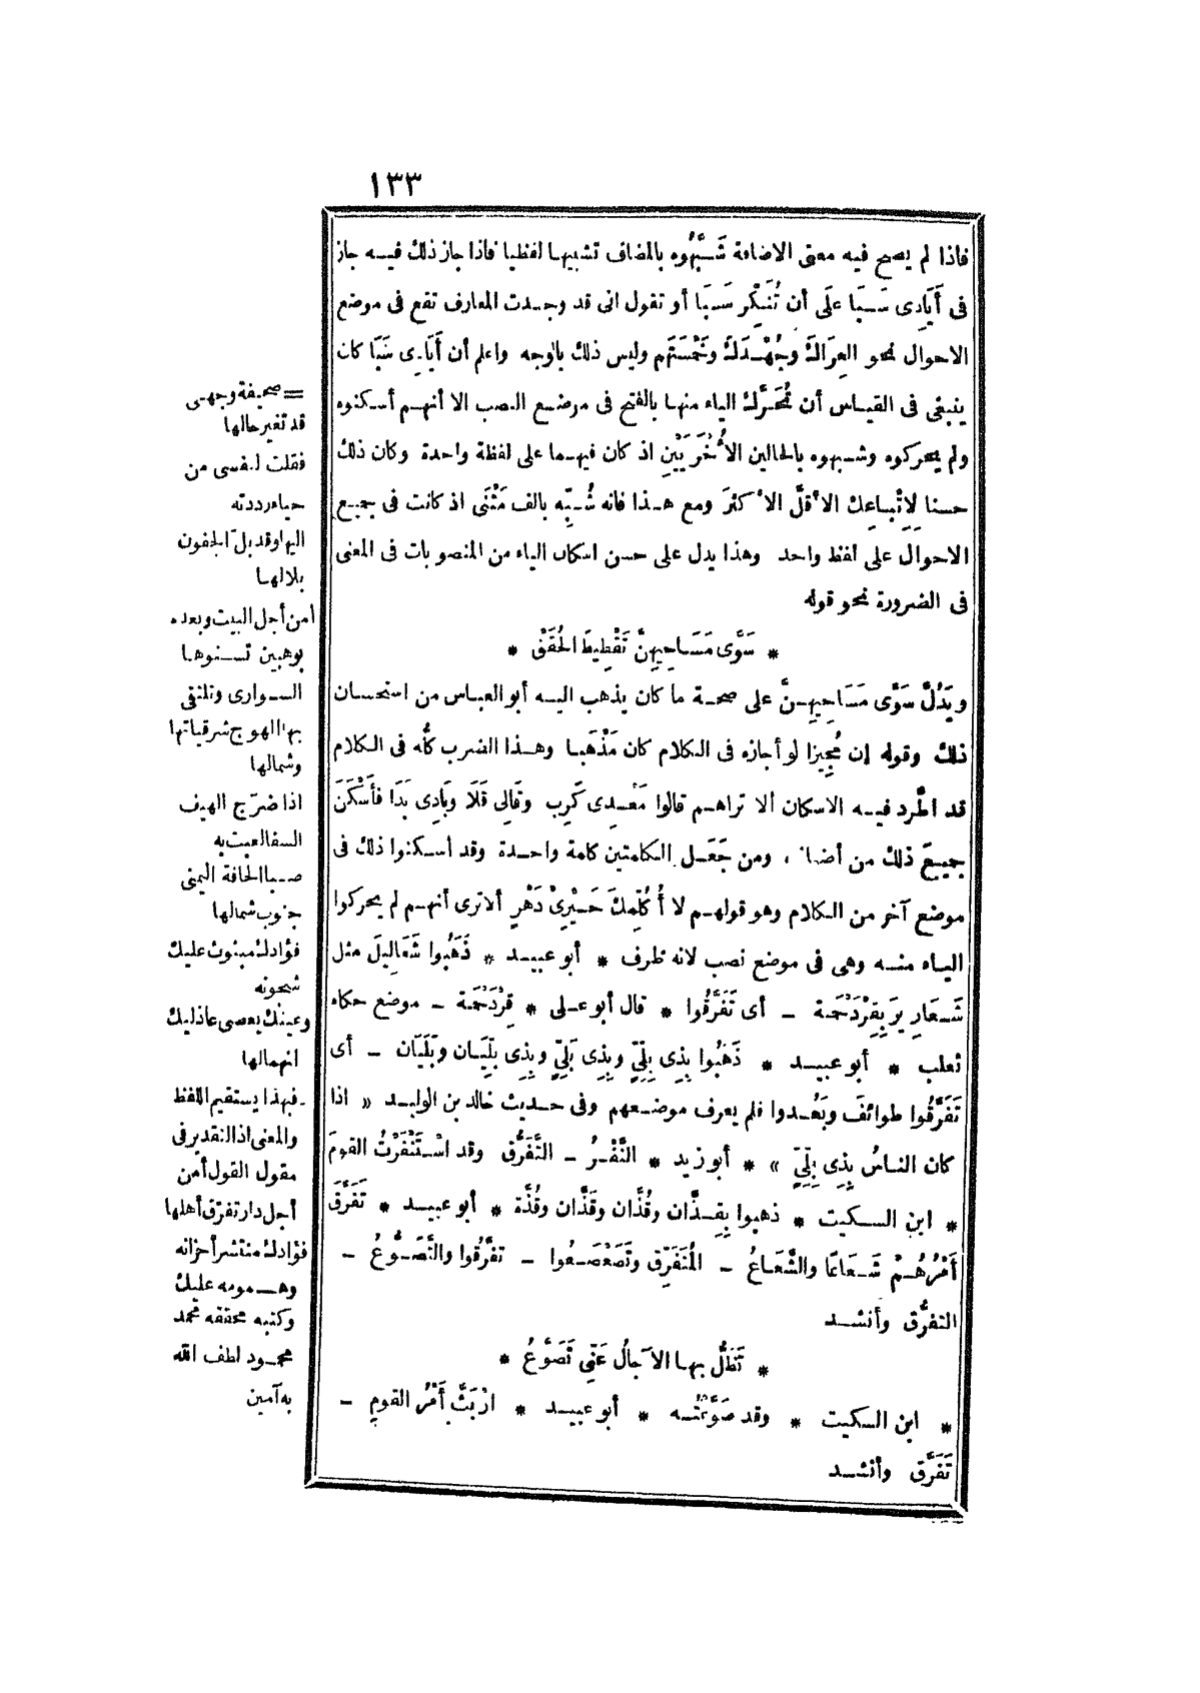 ١٣٣
فاذا لم يصح فيه معنى الاضافة شَبَّهُوه بالمضاف تشبيها لفظيا فاذا جاز ذلك فيه جاز
فى أَيَادِى سَبَا علَى أن تُنَكِّر سَبَا أو تقول انى قد وجدت المعارف تقع فى موضع
الاحوال نحو العِرَاكَ وجُهْدَكَ وخَمْستَهم وليس ذلك بالوجه واعلم أن أَيَادِى سَبَا كان
ينبغى فى القياس أن تُحَرَّك الياء منها بالفتح فى موضع النصب الا أنهم أسكنوه
ولم يحركوه وشبهوه بالحالين الأُخْرَيَيْنِ اذ كان فيهما على لفظة واحدة وكان ذلك
حسنا لِاتْباعِك الأقلَّ الأكثرَ ومع هذا فانه شُبِّه بالف مَثْنَى اذ كانت فى جميع
الاحوال على لفظ واحد وهذا يدل على حسن اسكان الياء من المنصوبات فى المعنى
فى الضرورة نحو قوله
* سَوَّى مَسَاحِيهِنَّ تَقْطِيطَ الحُقَقْ *
ويَدُلُّ سَوَّى مَسَاحِيهِنَّ على صحة ما كان يذهب اليه أبو العباس من استحسان
ذلك وقوله إن مُجِيزا لو أجازه فى الكلام كان مَذْهَبا وهذا الضرب كُلُّه فى الكلام
قد اطَّرد فيه الاسكان ألا تراهم قالوا مَعْدِى كَرِب وقَالِى قَلَا وبَادِى بَدَا فأَسْكَنَ
جميعَ ذلك من أضاف ، ومن جَعَل الكلمتين كلمة واحدة وقد أسكنوا ذلك فى
موضع آخر من الكلام وهو قولهم لا أُكَلِّمكَ حَيْرِىْ دَهْرٍ ألا ترى أنهم لم يحركوا
الياء منه وهى فى موضع نصب لانه ظرف * أبو عبيد * ذَهَبُوا شَعَالِيلَ مثل
شَعَارِيرَ بِقِرْدَحْمَة ــ أى تَفَرَّقُوا * قال أبو على * قِرْدَحْمَة ــ موضع حكاه
ثعلب * أبو عبيد * ذَهَبُوا بِذِى بِلِّىٍّ وبِذِى بَلِىٍّ وبِذِى بِلِّيَان وبَلَيَان ــ أى
تَفَرَّقُوا طوائفَ وبَعُدوا فلم يعرف موضعهم وفى حديث خالد بن الوليد « اذا
كان الناسُ بِذِى بِلِّىٍّ » * أبو زيد * النَّفْرُ ــ التَّفَرُّق وقد اسْتَنْفَرْتُ القومَ
* ابن السكيت * ذهبوا بِقِذَّان وقُذَّان وقَذَّان وقُذَّة * أبو عبيد * تَفَرَّقَ
أَمْرُهُمْ شَعَاعًا والشَّعَاعُ ــ المُتَفَرِّق وتَصَعْصَعُوا ــ تَفَرَّقُوا والتَّصَوُّعُ ــ
التفرُّق وأنشد
* تَظَلُّ بها الآجالُ عَنِّى تَصَوَّعُ *
* ابن السكيت * وقد صَوَّعْتُه * أبو عبيد * ارْبَثَّ أَمْرُ القومِ ــ
تَفَرَّق وأنشد
= صحيفة وجهى
قد تغير حالها
فقلت لنفسى من
حياء رددته
اليها وقد بلّ الجفون
بلالها
أمن أجل البيت وبعده
بوهبين تسنوها
السوارى وتلتقى
بها الهوج شرقياتها
وشمالها
اذا ضرّج الهيف
السفا لعبت به
صبا الحافة اليمنى
جنوب شمالها
فؤادك مبثوث عليك
شجونه
وعينك يعصى عاذليك
انهمالها
فبهذا يستقيم اللفظ
والمعنى اذ التقدير فى
مقول القول أمن
أجل دار تفرّق أهلها
فؤادك منتشر أحزانه
وهمومه عليك
وكتبه محققه محمد
محمود لطف الله
به آمين